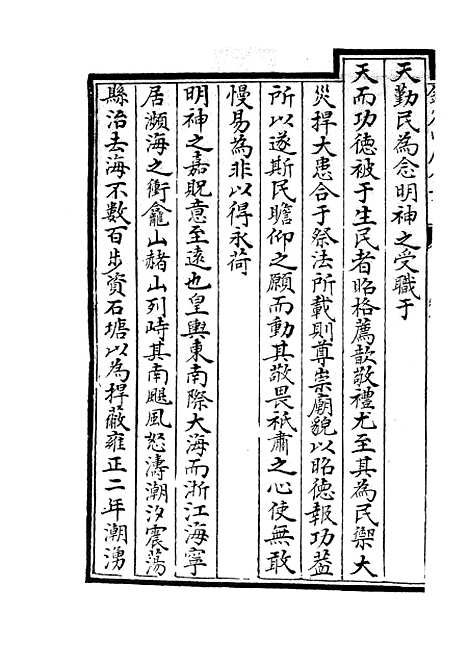 天勤民為念明神之受職于
天而功德被于生民者昭格薦歆敬禮尤至其為民禦大
災捍大患合于祭法所載則尊崇廟貌以昭德報功葢
所以遂斯民瞻仰之願而動其敬畏祇肅之心使無敢
慢易為非以得永荷
明神之嘉貺意至遠也皇輿東南際大海而浙江海寧
居瀕海之衝龕山赭山列峙其南飓風怒濤潮汐震蕩
縣治去海不數百步資石塘以為捍蔽雍正二年潮湧